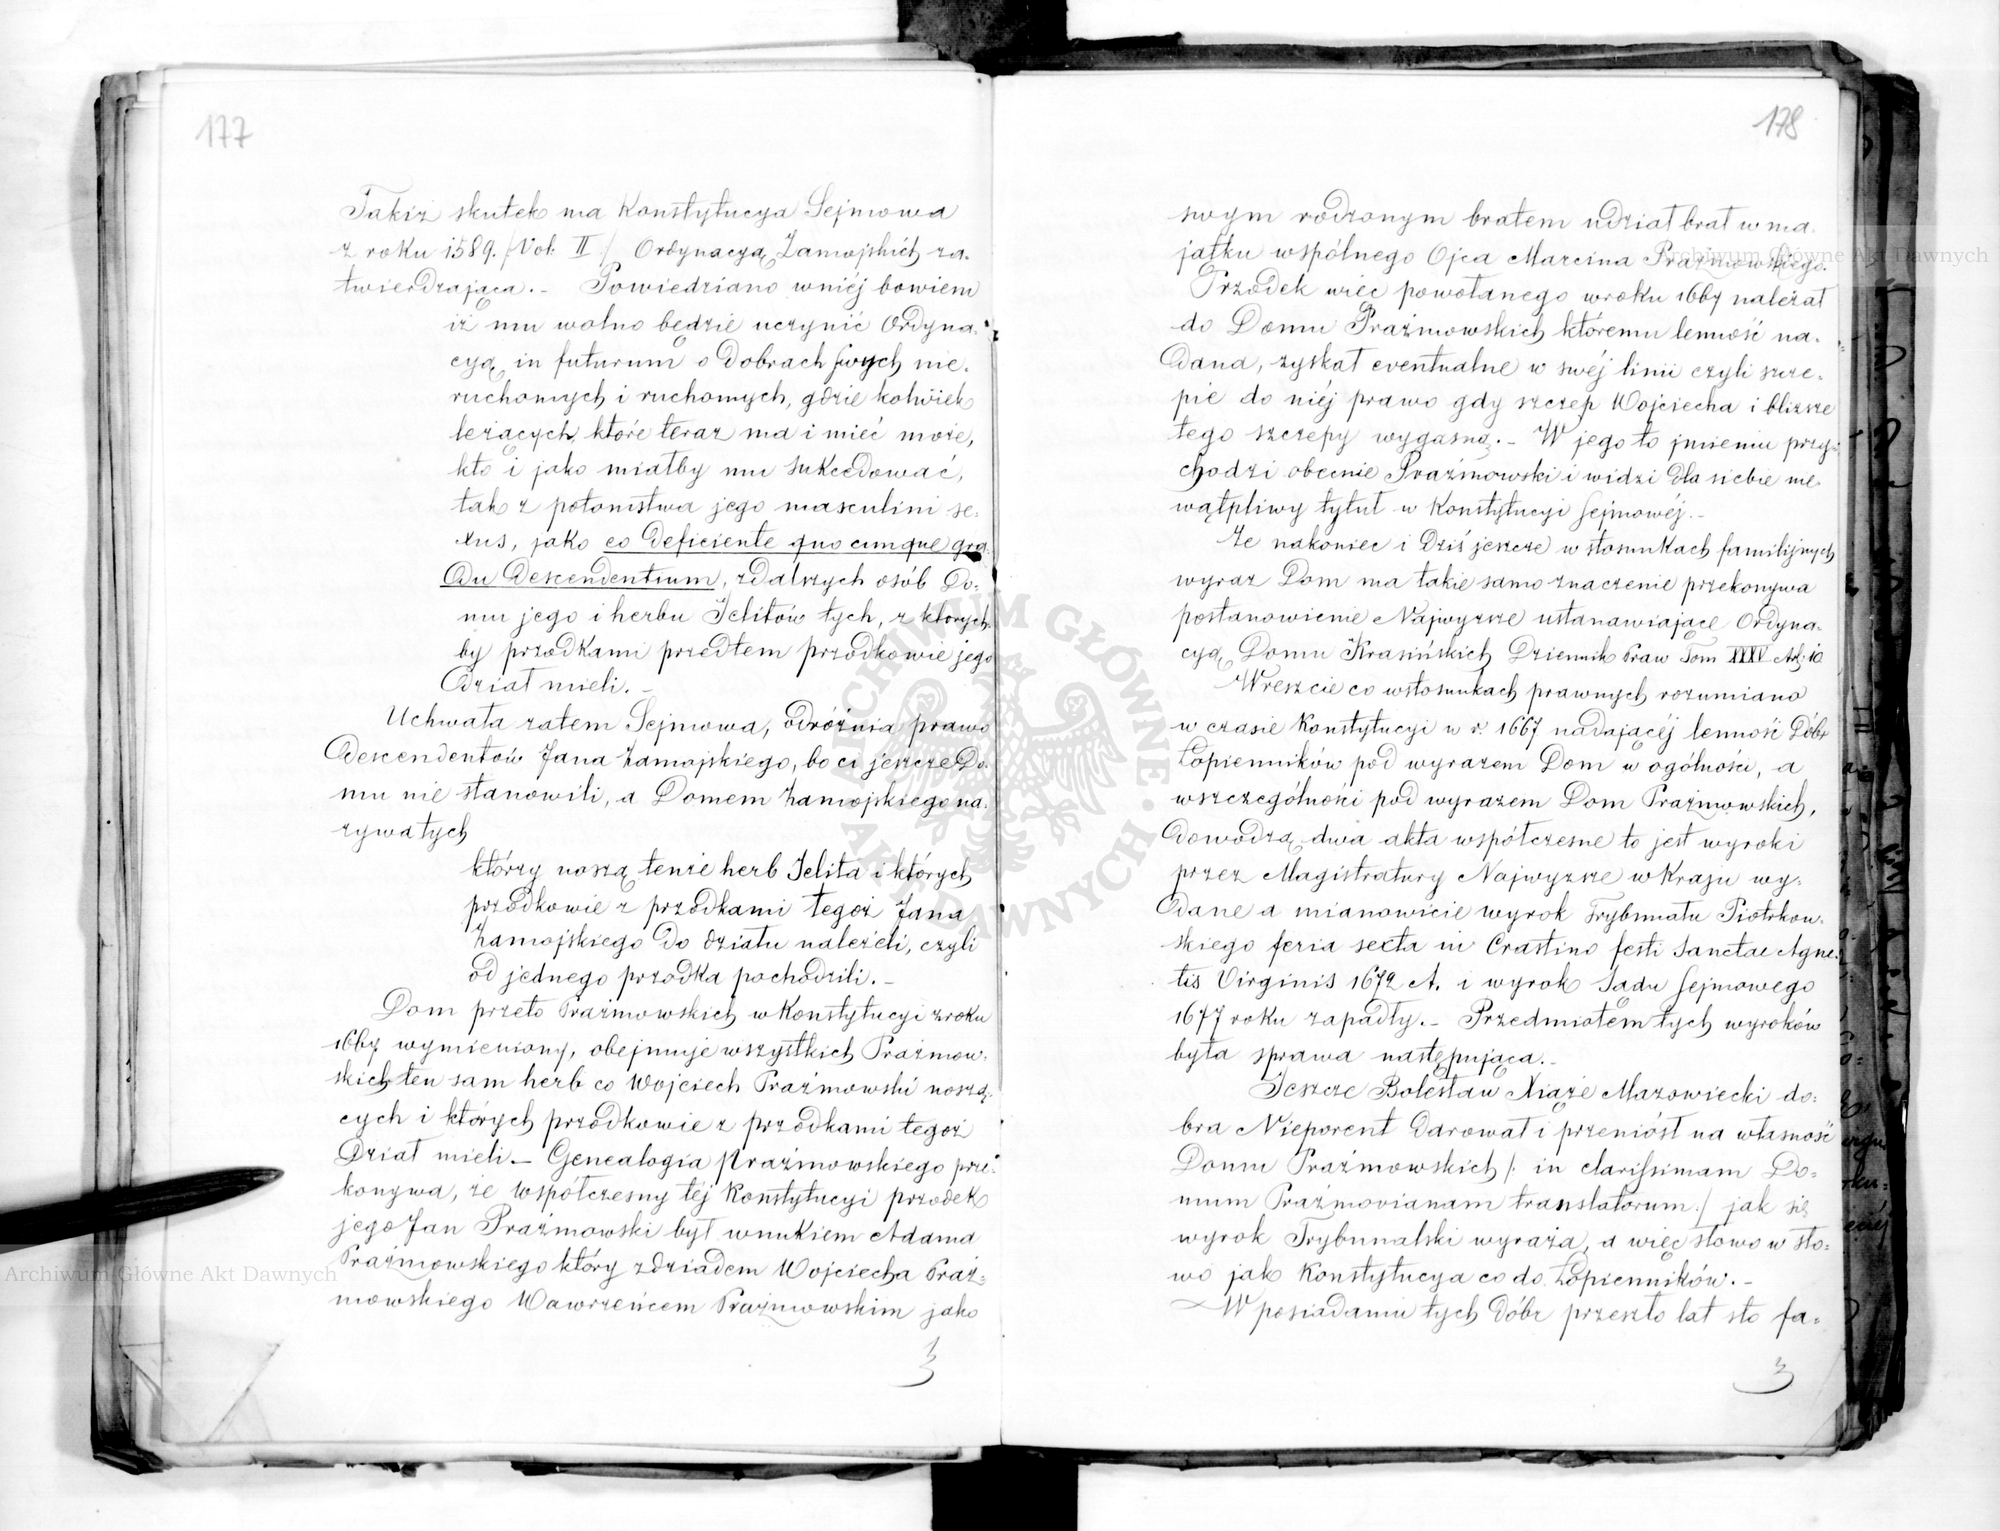 177
Takiż skutek ma Konstytucya Sejmowa
z roku 1589. /Vol. II/ Ordynacyą Zamojskich za-
twierdzająca. – Powiedziano w niéj bowiem
iż mu wolno będzie uczynić Ordyna-
cyą in futurum o Dobrach swych nie-
ruchomych i ruchomych, gdzie kolwiek
leżących które teraz ma i mieć może,
kto i jako miałby mu sukcedować,
tak z potomstwa jego masculini se-
xus, jako eo deficiente quocunque gra-
du descendentium, z dalszych osób Do-
mu jego i herbu Jelitów tych, z których-
by przodkami przedtem przodkowie jego
dział mieli. –
Uchwała zatem Sejmowa, odróżnia prawo
descendentów Jana Zamojskiego, bo ci jeszcze Do-
mu nie stanowili, a Domem Zamojskiego na-
zywa tych
którzy noszą tenże herb Jelita i których
przodkowie z przodkami tegoż Jana
Zamojskiego do działu należeli, czyli
od jednego przodka pochodzili. –
Dom przeto Prażmowskich w Konstytucyi z roku
1667 wymieniony, obejmuje wszystkich Prażmow-
skich ten sam herb co Wojciech Prażmowski noszą-
cych i których przodkowie z przodkami tegoż
Dział mieli – Genealogia Prażmowskiego prze-
konywa, że współczesny téj Konstytucyi przodek
jego Jan Prażmowski był wnukiem Adama
Prażmowskiego który z dziadem Wojciecha Praż-
mowskiego Wawrzeńcem Prażmowskim jako
178
swym rodzonym bratem udział brał w ma-
jątku wspólnego Ojca Marcina Prażmowskiego.
Przodek więc powołanego w roku 1667 należał
do Domu Prażmowskich któremu lenność na-
dana, zyskał eventualne w swéj linii czyli szcze-
pie do niéj prawo gdy szczep Wojciecha i bliższe
tego szczepy wygasną. – W jego to imieniu przy-
chodzi obecnie Prażmowski i widzi dla siebie nie-
wątpliwy tytuł w Konstytucyi Sejmowéj. –
Że nakoniec i dziś jeszcze w stosunkach familijnych
wyraz Dom ma takie samo znaczenie przekonywa
postanowienie Najwyższe ustanawiające Ordyna-
cyą Domu Krasińskich Dziennik Praw Tom XXXV Art. 10
Wreszcie co w stosunkach prawnych rozumiano
w czasie Konstytucyi w r. 1667 nadającéj lenność Dóbr
Łopienników pod wyrazem Dom w ogólności, a
w szczególności pod wyrazem Dom Prażmowskich,
dowodzą dwa akta współczesne to jest wyroki
przez Magistratury Najwyższe w Kraju wy-
dane a mianowicie wyrok Trybunału Piotrkow-
skiego feria sexta in Crastino festi Sanctae Agne-
tis Virginis 1672 A. i wyrok Sądu Sejmowego
1677 roku zapadły. – Przedmiotem tych wyroków
była sprawa następująca. –
Jeszcze Bolesław Xiąże Mazowiecki do-
bra Nieporent darował i przeniósł na własność
Domu Prażmowskich /: in clarissimam Do-
mum Prażmovianam translatorum :/ jak się
wyrok Trybunalski wyraża, a więc słowo w sło-
wo jak Konstytucya co do Łopienników. –
W posiadaniu tych Dóbr przeszło lat sto fa-
Archiwum Główne Akt Dawnych
Archiwum Główne Akt Dawnych
ARCHIWUM GŁÓWNE AKT DAWNYCH